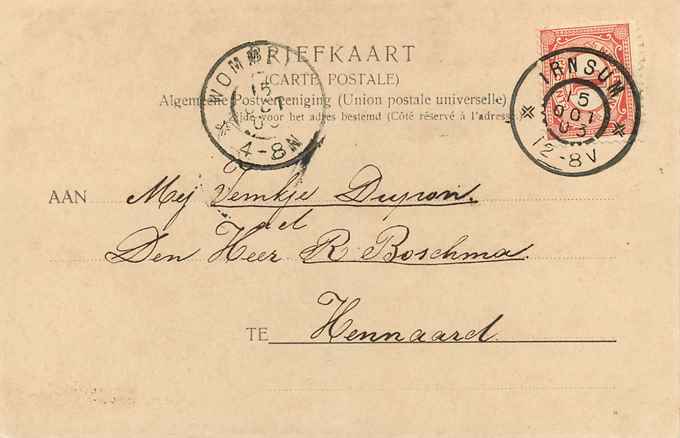 BRIEFKAART
(CARTE POSTALE)
Algemeene Postvereeniging (Union postale universelle)
Zijde voor het adres bestemd (Côté réservé à l'adresse)
WOMM
15
OCT
03
4-8N
IRNSUM
15
OCT
03
12-8V
AAN Mej Dupon.
el
Den Heer R Boschma.
TE Hennaard.